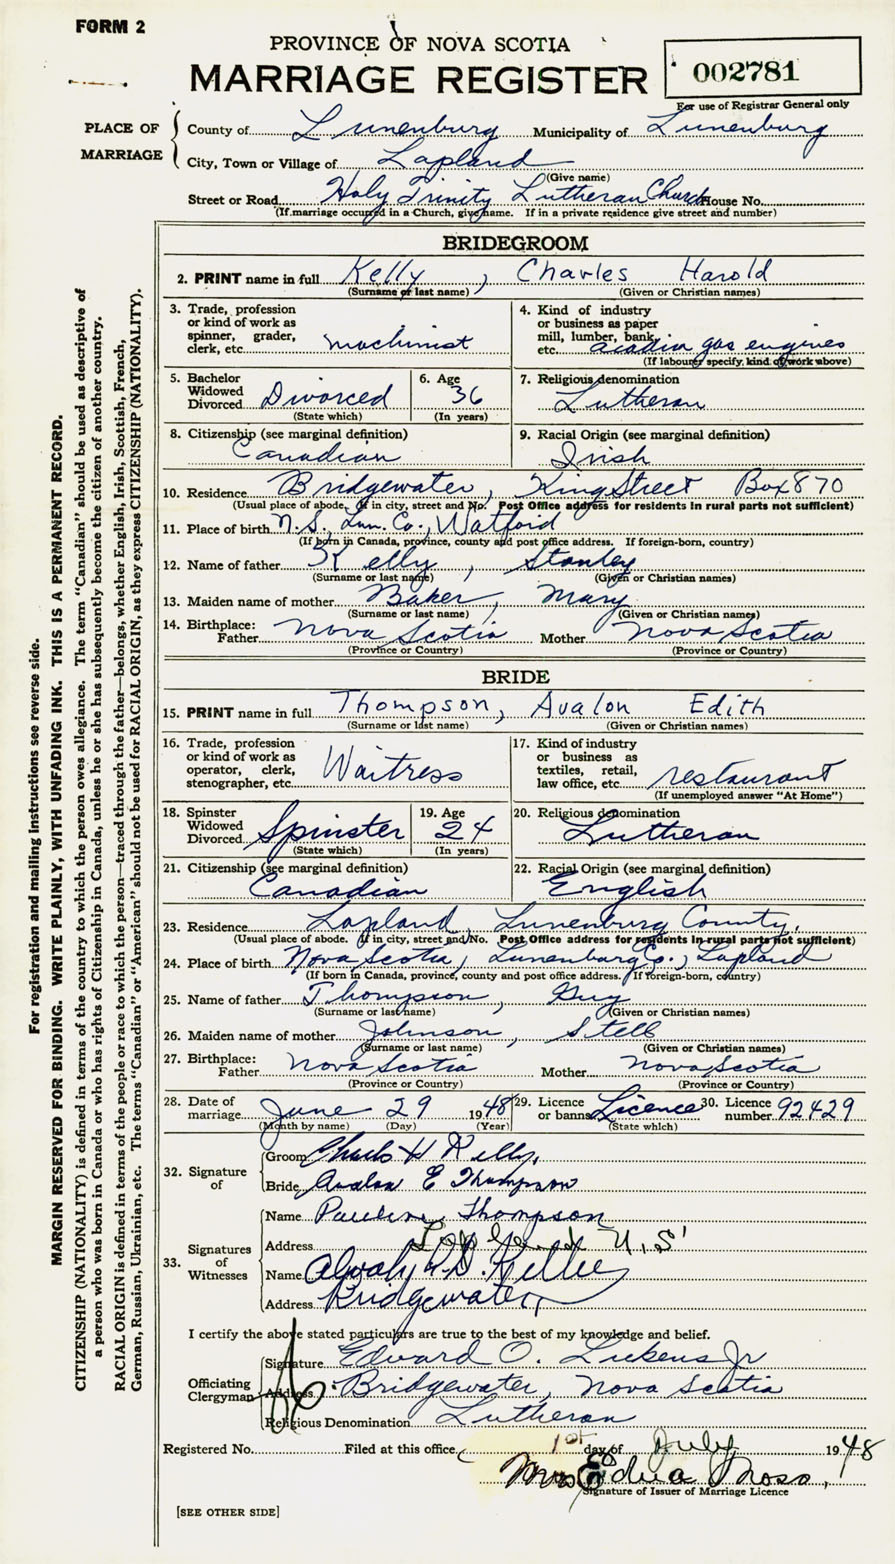 FORM 2
PROVINCE OF NOVA SCOTIA
MARRIAGE REGISTER
002781
For use of Registrar General only
PLACE OF MARRIAGE
County of Lunenburg Municipality of Lunenburg
City, Town or Village of Lapland
(Give name)
Street or Road Holy Trinity Lutheran Church House No.
(If marriage occurred in a Church, give name. If in a private residence give street and number)
BRIDEGROOM
2. PRINT name in full Kelly, Charles Harold
(Surname or last name) (Given or Christian names)
3. Trade, profession or kind of work as spinner, grader, clerk, etc. machinist
4. Kind of industry or business as paper mill, lumber, bank, etc. acadia gas engines
(If labourer specify, kind of work above)
5. Bachelor Widowed Divorced Divorced
(State which)
6. Age 36
(In years)
7. Religious denomination
Lutheran
8. Citizenship (see marginal definition)
Canadian
9. Racial Origin (see marginal definition)
Irish
10. Residence Bridgewater, King Street Box 870
(Usual place of abode. If in city, street and No. Post Office address for residents in rural parts not sufficient)
11. Place of birth N.S., Lun. Co., Watford
(If born in Canada, province, county and post office address. If foreign-born, country)
12. Name of father Kelly, Stanley
(Surname or last name) (Given or Christian names)
13. Maiden name of mother Baker, Mary
(Surname or last name) (Given or Christian names)
14. Birthplace: Father Nova Scotia Mother Nova Scotia
(Province or Country) (Province or Country)
BRIDE
15. PRINT name in full Thompson, Avalon Edith
(Surname or last name) (Given or Christian names)
16. Trade, profession or kind of work as operator, clerk, stenographer, etc. Waitress
17. Kind of industry or business as textiles, retail, law office, etc. restaurant
(If unemployed answer "At Home")
18. Spinster Widowed Divorced Spinster
(State which)
19. Age 24
(In years)
20. Religious denomination
Lutheran
21. Citizenship (see marginal definition)
Canadian
22. Racial Origin (see marginal definition)
English
23. Residence Lapland, Lunenburg County.
(Usual place of abode. If in city, street and No. Post Office address for residents in rural parts not sufficient)
24. Place of birth Nova Scotia, Lunenburg Co., Lapland
(If born in Canada, province, county and post office address. If foreign-born, country)
25. Name of father Thompson, Guy
(Surname or last name) (Given or Christian names)
26. Maiden name of mother Johnson, Stell
(Surname or last name) (Given or Christian names)
27. Birthplace: Father Nova Scotia Mother Nova Scotia
(Province or Country) (Province or Country)
28. Date of marriage June 29 1948
(Month by name) (Day) (Year)
29. Licence or banns Licence
(State which)
30. Licence number 92429
32. Signature of
Groom Charles H Kelly.
Bride Avalon E Thompson
33. Signatures of Witnesses
Name Pauline Thompson
Address N.S
Name
Address Bridgewater
I certify the above stated particulars are true to the best of my knowledge and belief.
Officiating Clergyman
Signature Edward O. Lukens Jr
Address Bridgewater, Nova Scotia
Religious Denomination Lutheran
Registered No. Filed at this office 1st day of July 1948
Mrs Edna Moss,
Signature of Issuer of Marriage Licence
[SEE OTHER SIDE]
For registration and mailing instructions see reverse side.
MARGIN RESERVED FOR BINDING. WRITE PLAINLY, WITH UNFADING INK. THIS IS A PERMANENT RECORD.
CITIZENSHIP (NATIONALITY) is defined in terms of the country to which the person owes allegiance. The term "Canadian" should be used as descriptive of
a person who was born in Canada or who has rights of Citizenship in Canada, unless he or she has subsequently become the citizen of another country.
RACIAL ORIGIN is defined in terms of the people or race to which the person—traced through the father—belongs, whether English, Irish, Scottish, French,
German, Russian, Ukrainian, etc. The terms "Canadian" or "American" should not be used for RACIAL ORIGIN, as they express CITIZENSHIP (NATIONALITY).